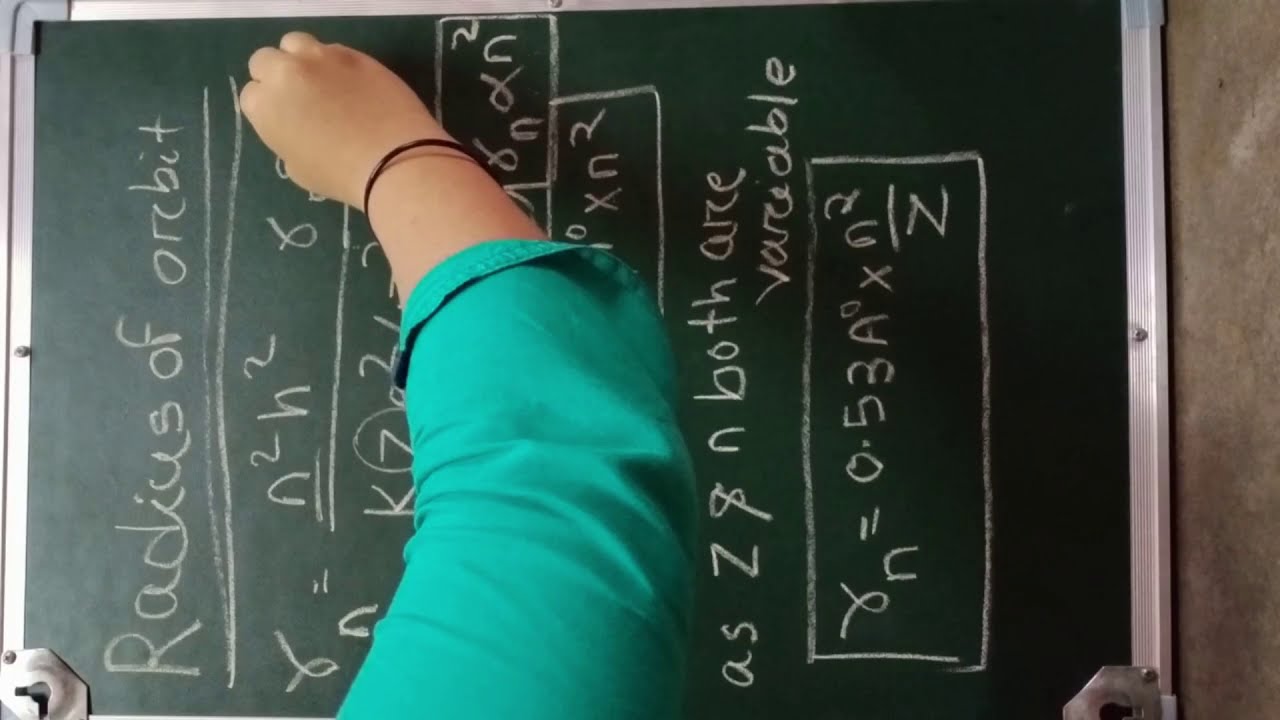 Radius of orbit
rₙ = n²h²
K Z
rₙ ∝ n²
A° × n²
as Z & n both are
variable
rₙ = 0.53A° × n²/Z